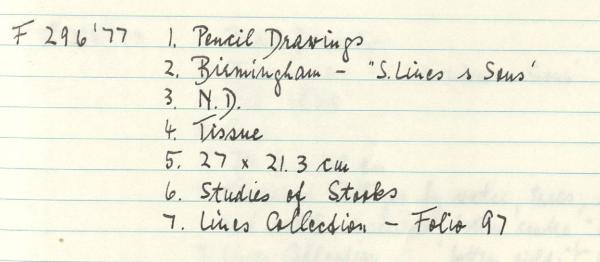 F 296'77 1. Pencil Drawings
2. Birmingham - "S. Lines & Sons'
3. N.D.
4. Tissue
5. 27 x 21.3 cm
6. Studies of Storks
7. Lines Collection - Folio 97